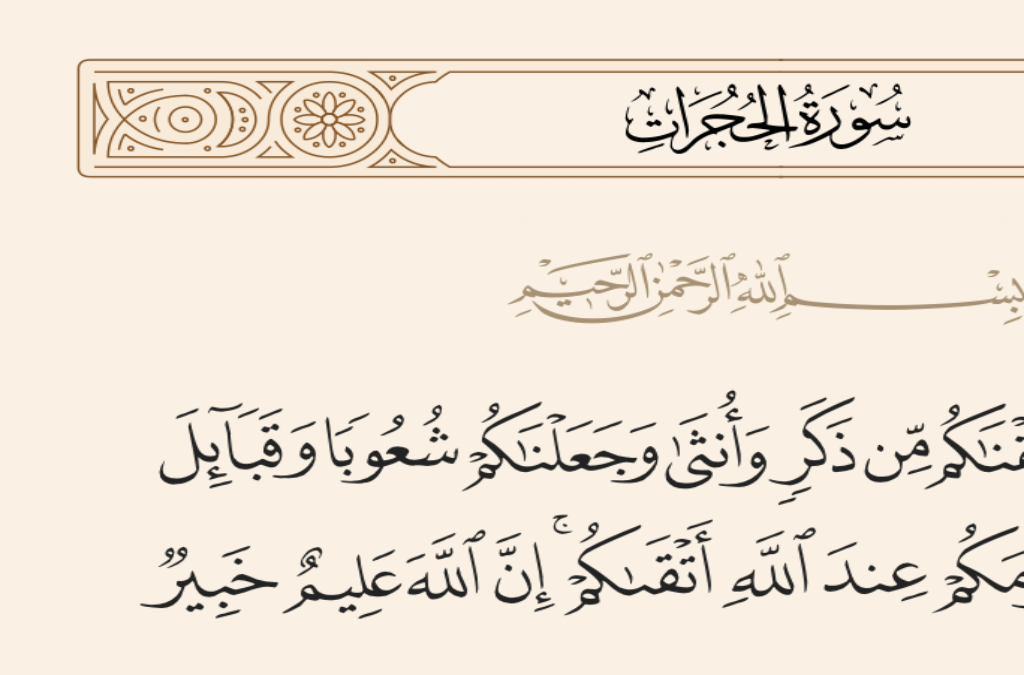 سُورَةُ الحُجُرَاتِ
بِسْمِ ٱللَّهِ ٱلرَّحْمَٰنِ ٱلرَّحِيمِ
مِّن ذَكَرٍ وَأُنثَىٰ وَجَعَلْنَـٰكُمْ شُعُوبًا وَقَبَآئِلَ
عِندَ ٱللَّهِ أَتْقَىٰكُمْ ۚ إِنَّ ٱللَّهَ عَلِيمٌ خَبِيرٌ